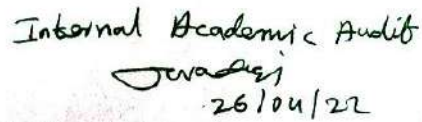 Internal Academic Audit
26/04/22